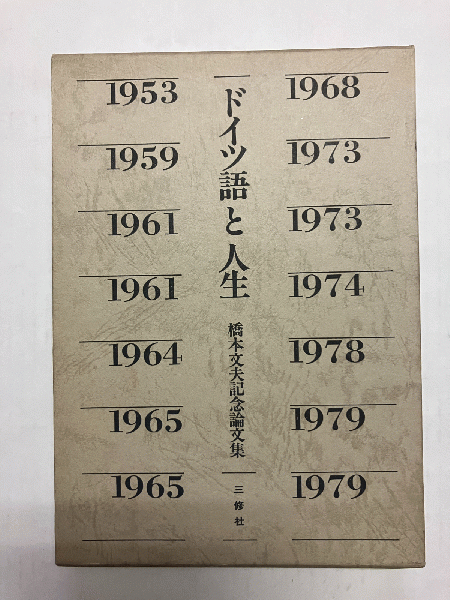 1953
1959
1961
1961
1964
1965
1965
ドイツ語と人生
橋本文夫記念論文集
三修社
1968
1973
1973
1974
1978
1979
1979